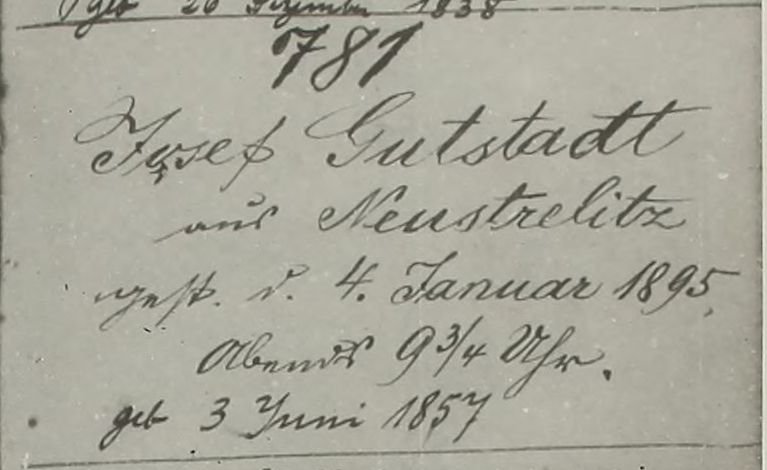 geb 26 Dezember 1838
781
Josef Gutstadt
aus Neustrelitz
gest. d. 4. Januar 1895,
Abends 9 3/4 Uhr.
geb 3 Juni 1857